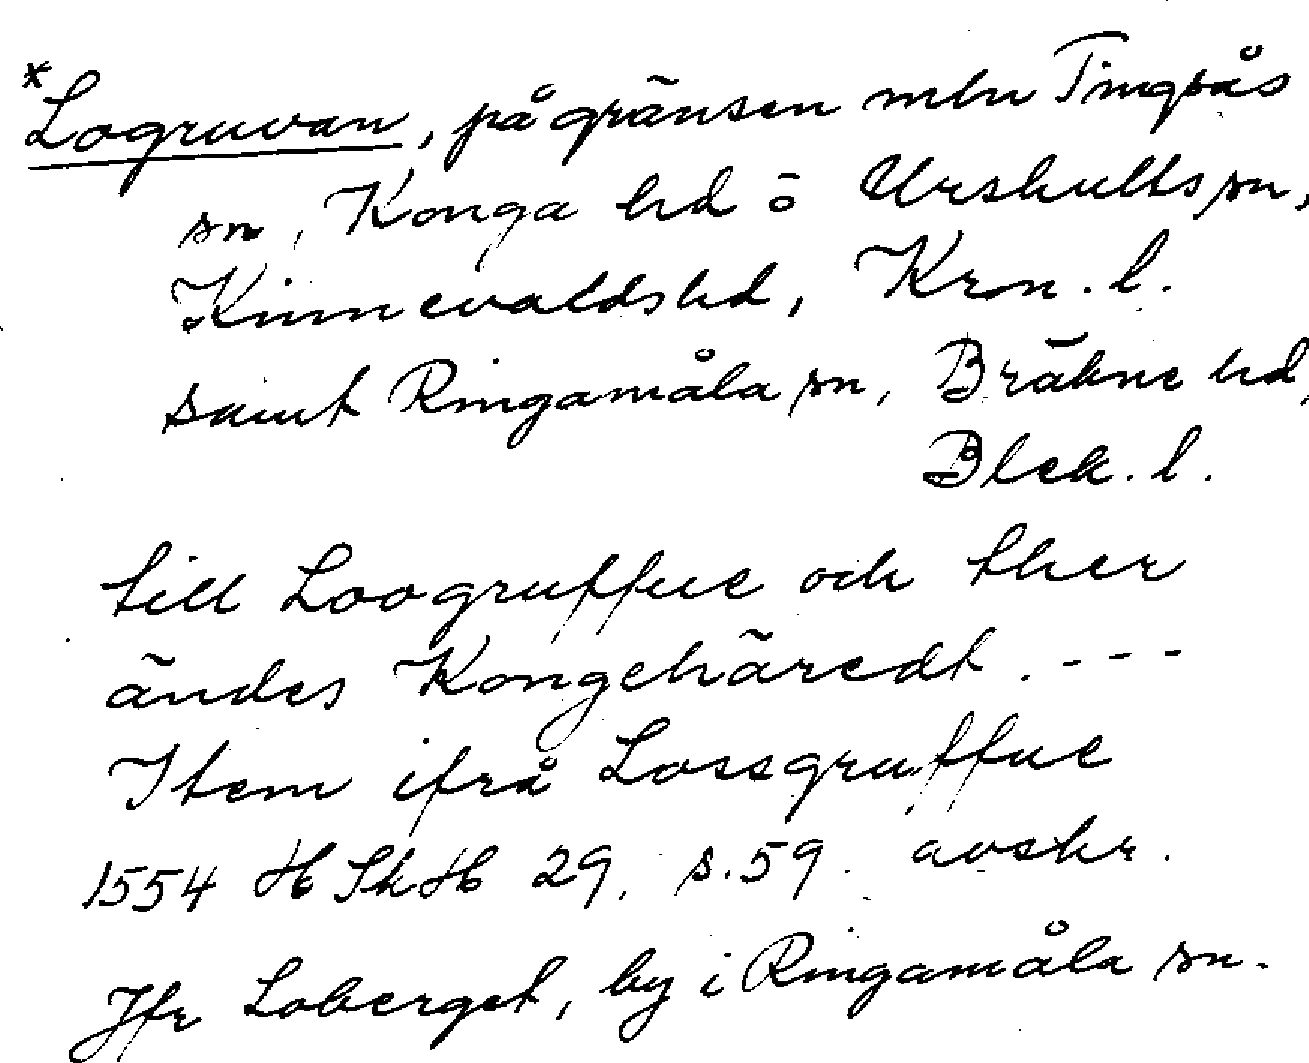 *Logruvan, på gränsen mln Tingsås
sn, Konga hd ö Urshults sn,
Kinnevalds hd, Kron. l.
samt Ringamåla sn, Bräkne hd,
Blek. l.
till Loogruffue och ther
ändes Kongehäredt. ---
Item ifrå Lossgruffue
1554 HSkH 29, s. 59. avskr.
Jfr Loberget, by i Ringamåla sn.